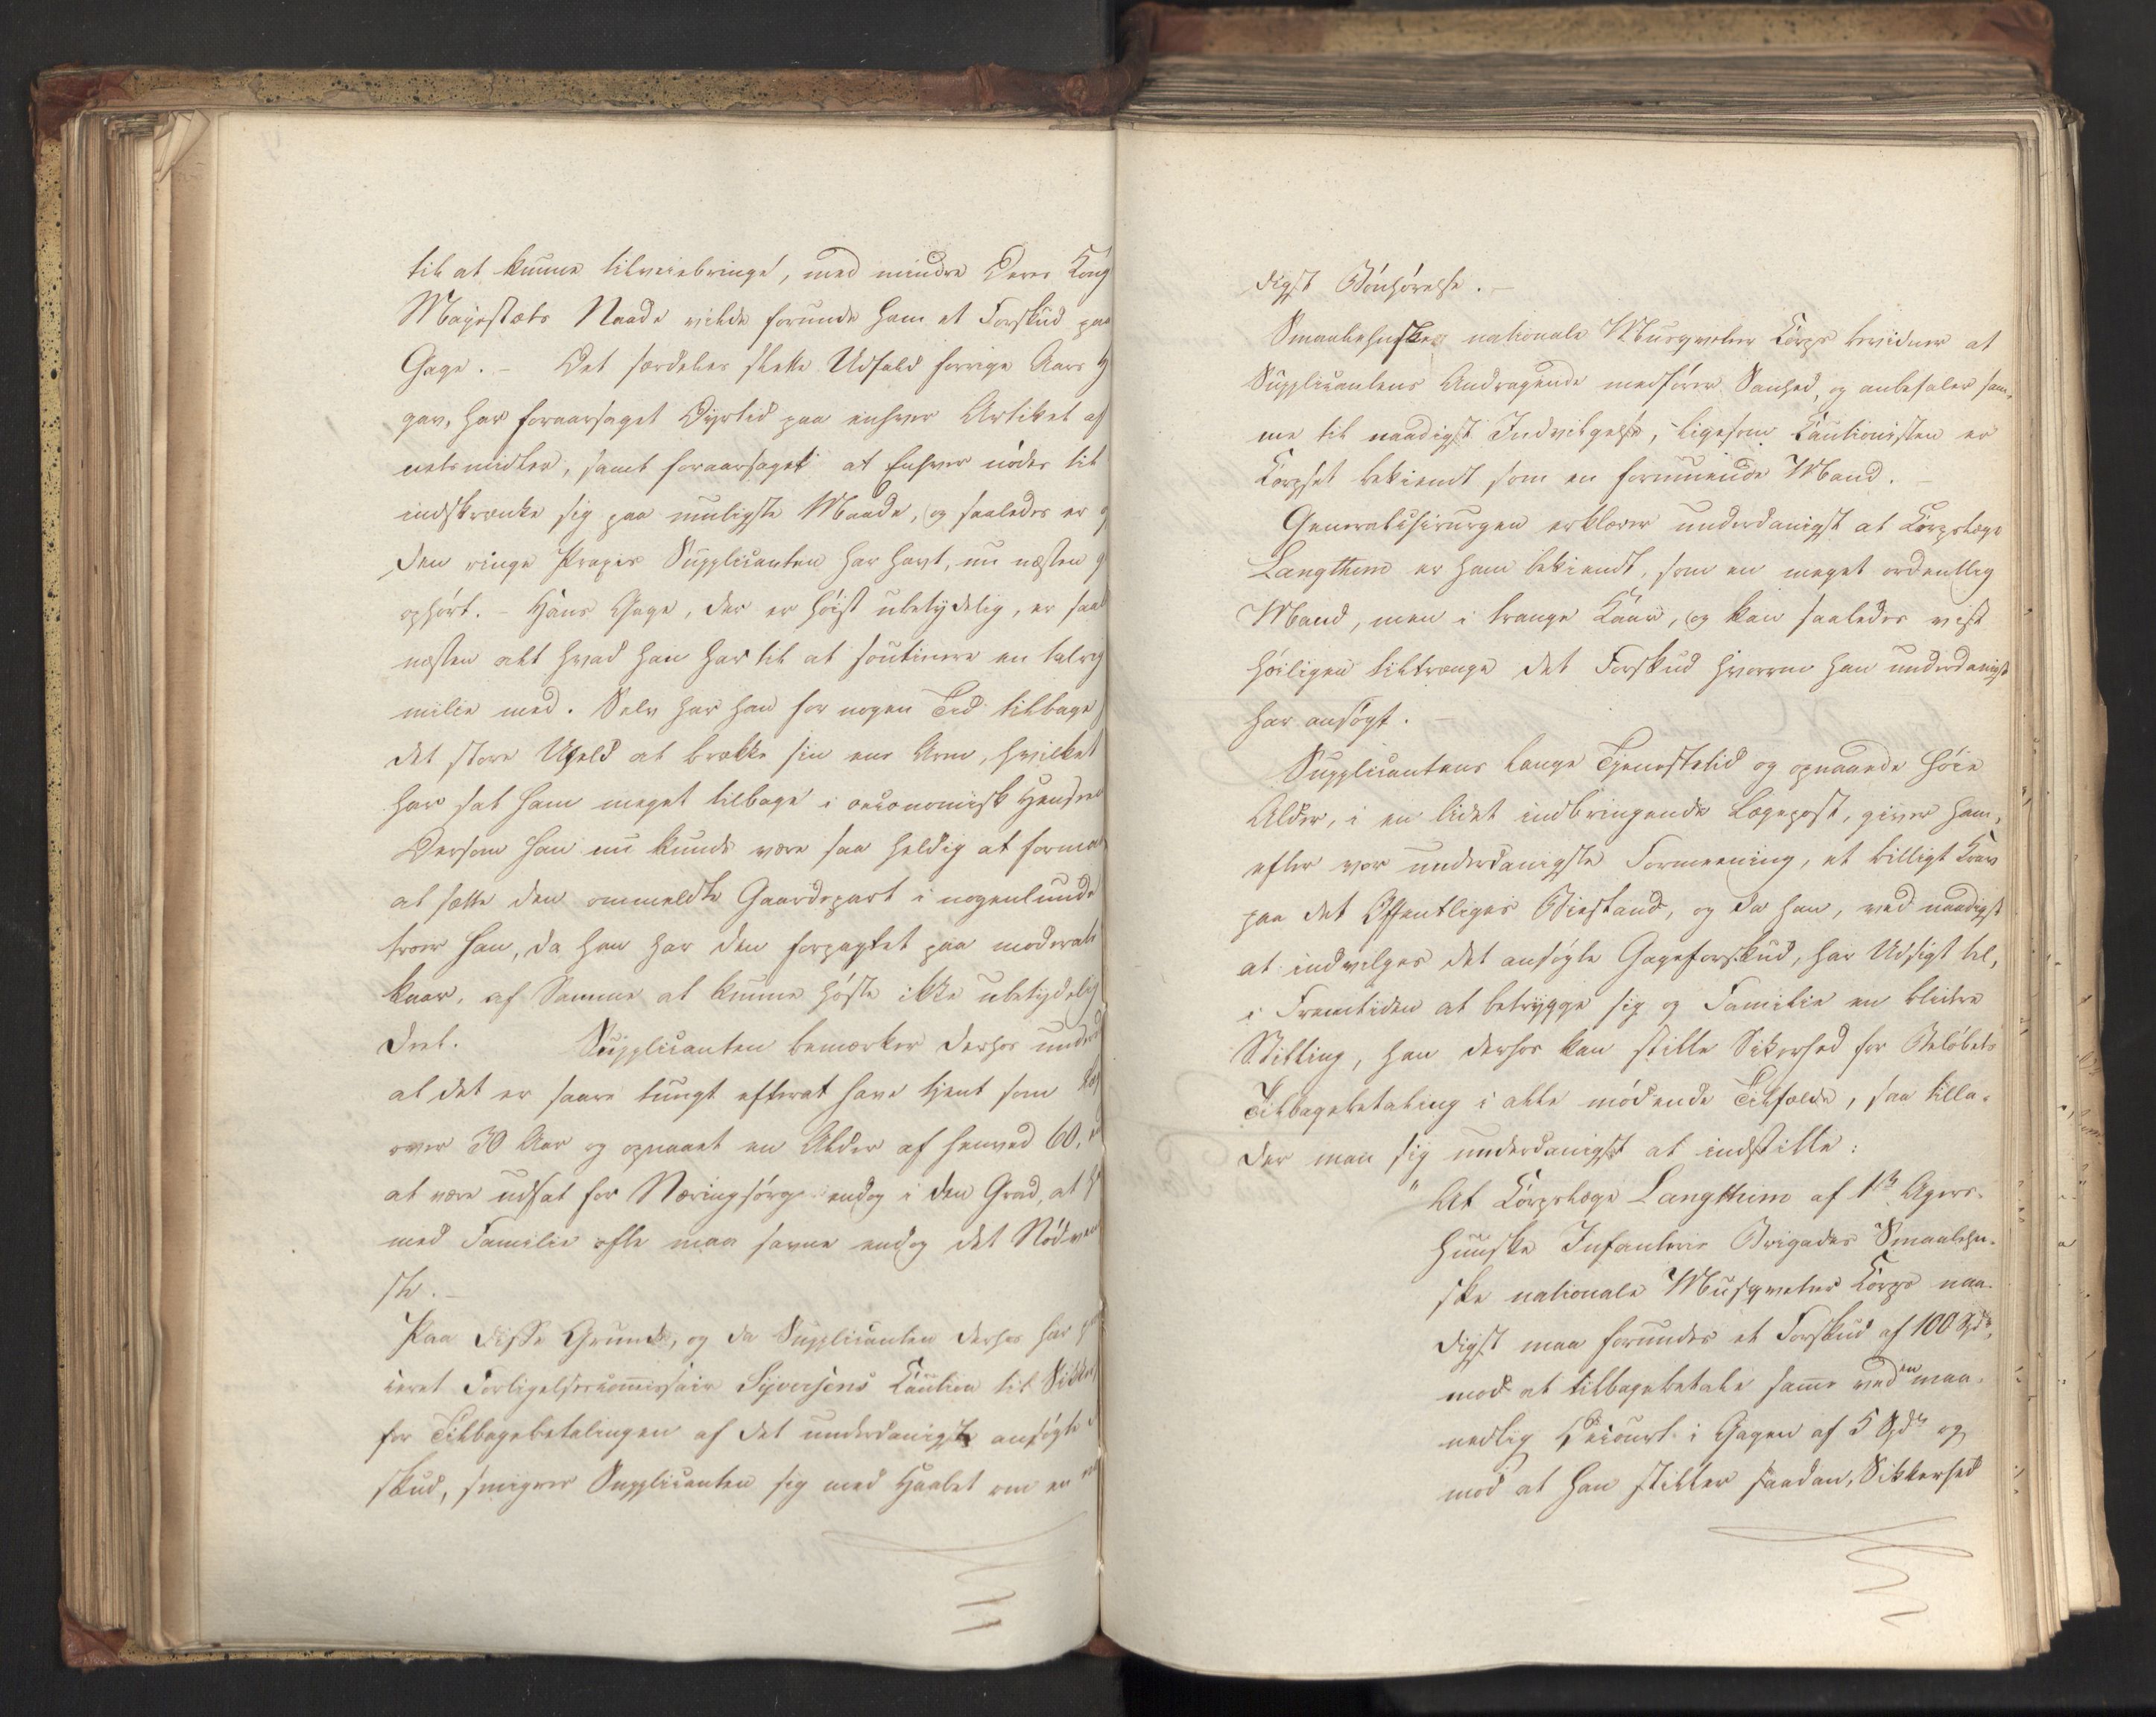 til at kunne tilveiebringe, med mindre Deres Kong
Mayestæts Naade vilde forunde ham et Forskud paa
Gage. – Det særdeles slette Udfald forrige Aars H
gav, har foraarsaget Dyrtid paa enhver Artikel af
netsmidler, samt foraarsaget at Enhver nödes til
indskrænke sig paa muligste Maade, og saaledes er
den ringe Praxis Supplicanten har havt, nu næsten
ophört. – Hans Gage, der er höist ubetydelig, er saal
næsten alt hvad han har til at soutinere en talrig
milie med. Selv har han for nogen Tid tilbage
det store Uheld at brække sin ene Arm, hvilket
har sat ham meget tilbage i oeconomisk Hensee
Dersom han nu kunde være saa heldig at formaa
at sætte den ommeldte Gaardspart i nogenlunde
troer han, da han har den forpagtet paa moderate
kaar, af Samme at kunne höste ikke ubetydelig
deel. Supplicanten bemærker derhos underd
at det er saare tungt efterat have tjent som
over 30 Aar og opnaaet en Alder af henved 60,
at være udsat for Næringsorg endog i den Grad, at
med Familie ofte maa savne endog det Nödven
ste. –
Paa disse Grunde, og da Supplicanten derhos har
ceret Forligelsescommissair Syversens Caution til Sikker
for Tilbagebetalingen af det underdanigst ansögte
skud, smigrer Supplicanten sig med Haabet om en
digst Bönhörelse. –
Smaalehnske nationale Musqveteer Corps bevidner at
Supplicantens Andragende medförer Sanhed, og anbefaler sam-
me til naadigst Indvilgelse, ligesom Cautionisten er
Corpset bekiendt som en formuende Mand. –
Generalchirurgen erklærer underdanigst at Corpslæge
Langthim er ham bekiendt, som en meget ordentlig
Mand, men i trange Kaar, og kan saaledes vist
höiligen tiltrænge det Forskud hvorom han underdanigst
har ansögt. –
Supplicantens lange Tjenestetid og opnaaede höie
Alder, i en lidet indbringende Lægepost, giver ham,
efter vor underdanigste Formeening, et billigt Krav
paa det Offentliges Biestand, og da han, ved naadigst
at indvilges det ansögte Gageforskud, har Udsigt til,
i Fremtiden at betrygge sig og Familie en blidere
Stilling, han derhos kan stille Sikerhed for Belöbets
Tilbagebetaling i alle mödende Tilfælde, saa tilla-
der man sig underdanigst at indstille:
"At Corpslæge Langthim af 1ste Agers-
huuske Infanterie Brigades Smaalehn-
ske nationale Musqveteer Corps naa-
digst maa forundes et Forskud af 100 Spdr,
mod at tilbagebetale samme ved en maa-
nedlig Decourt i Gagen af 5 Spdr og
mod at han stiller saadan Sikkerhed